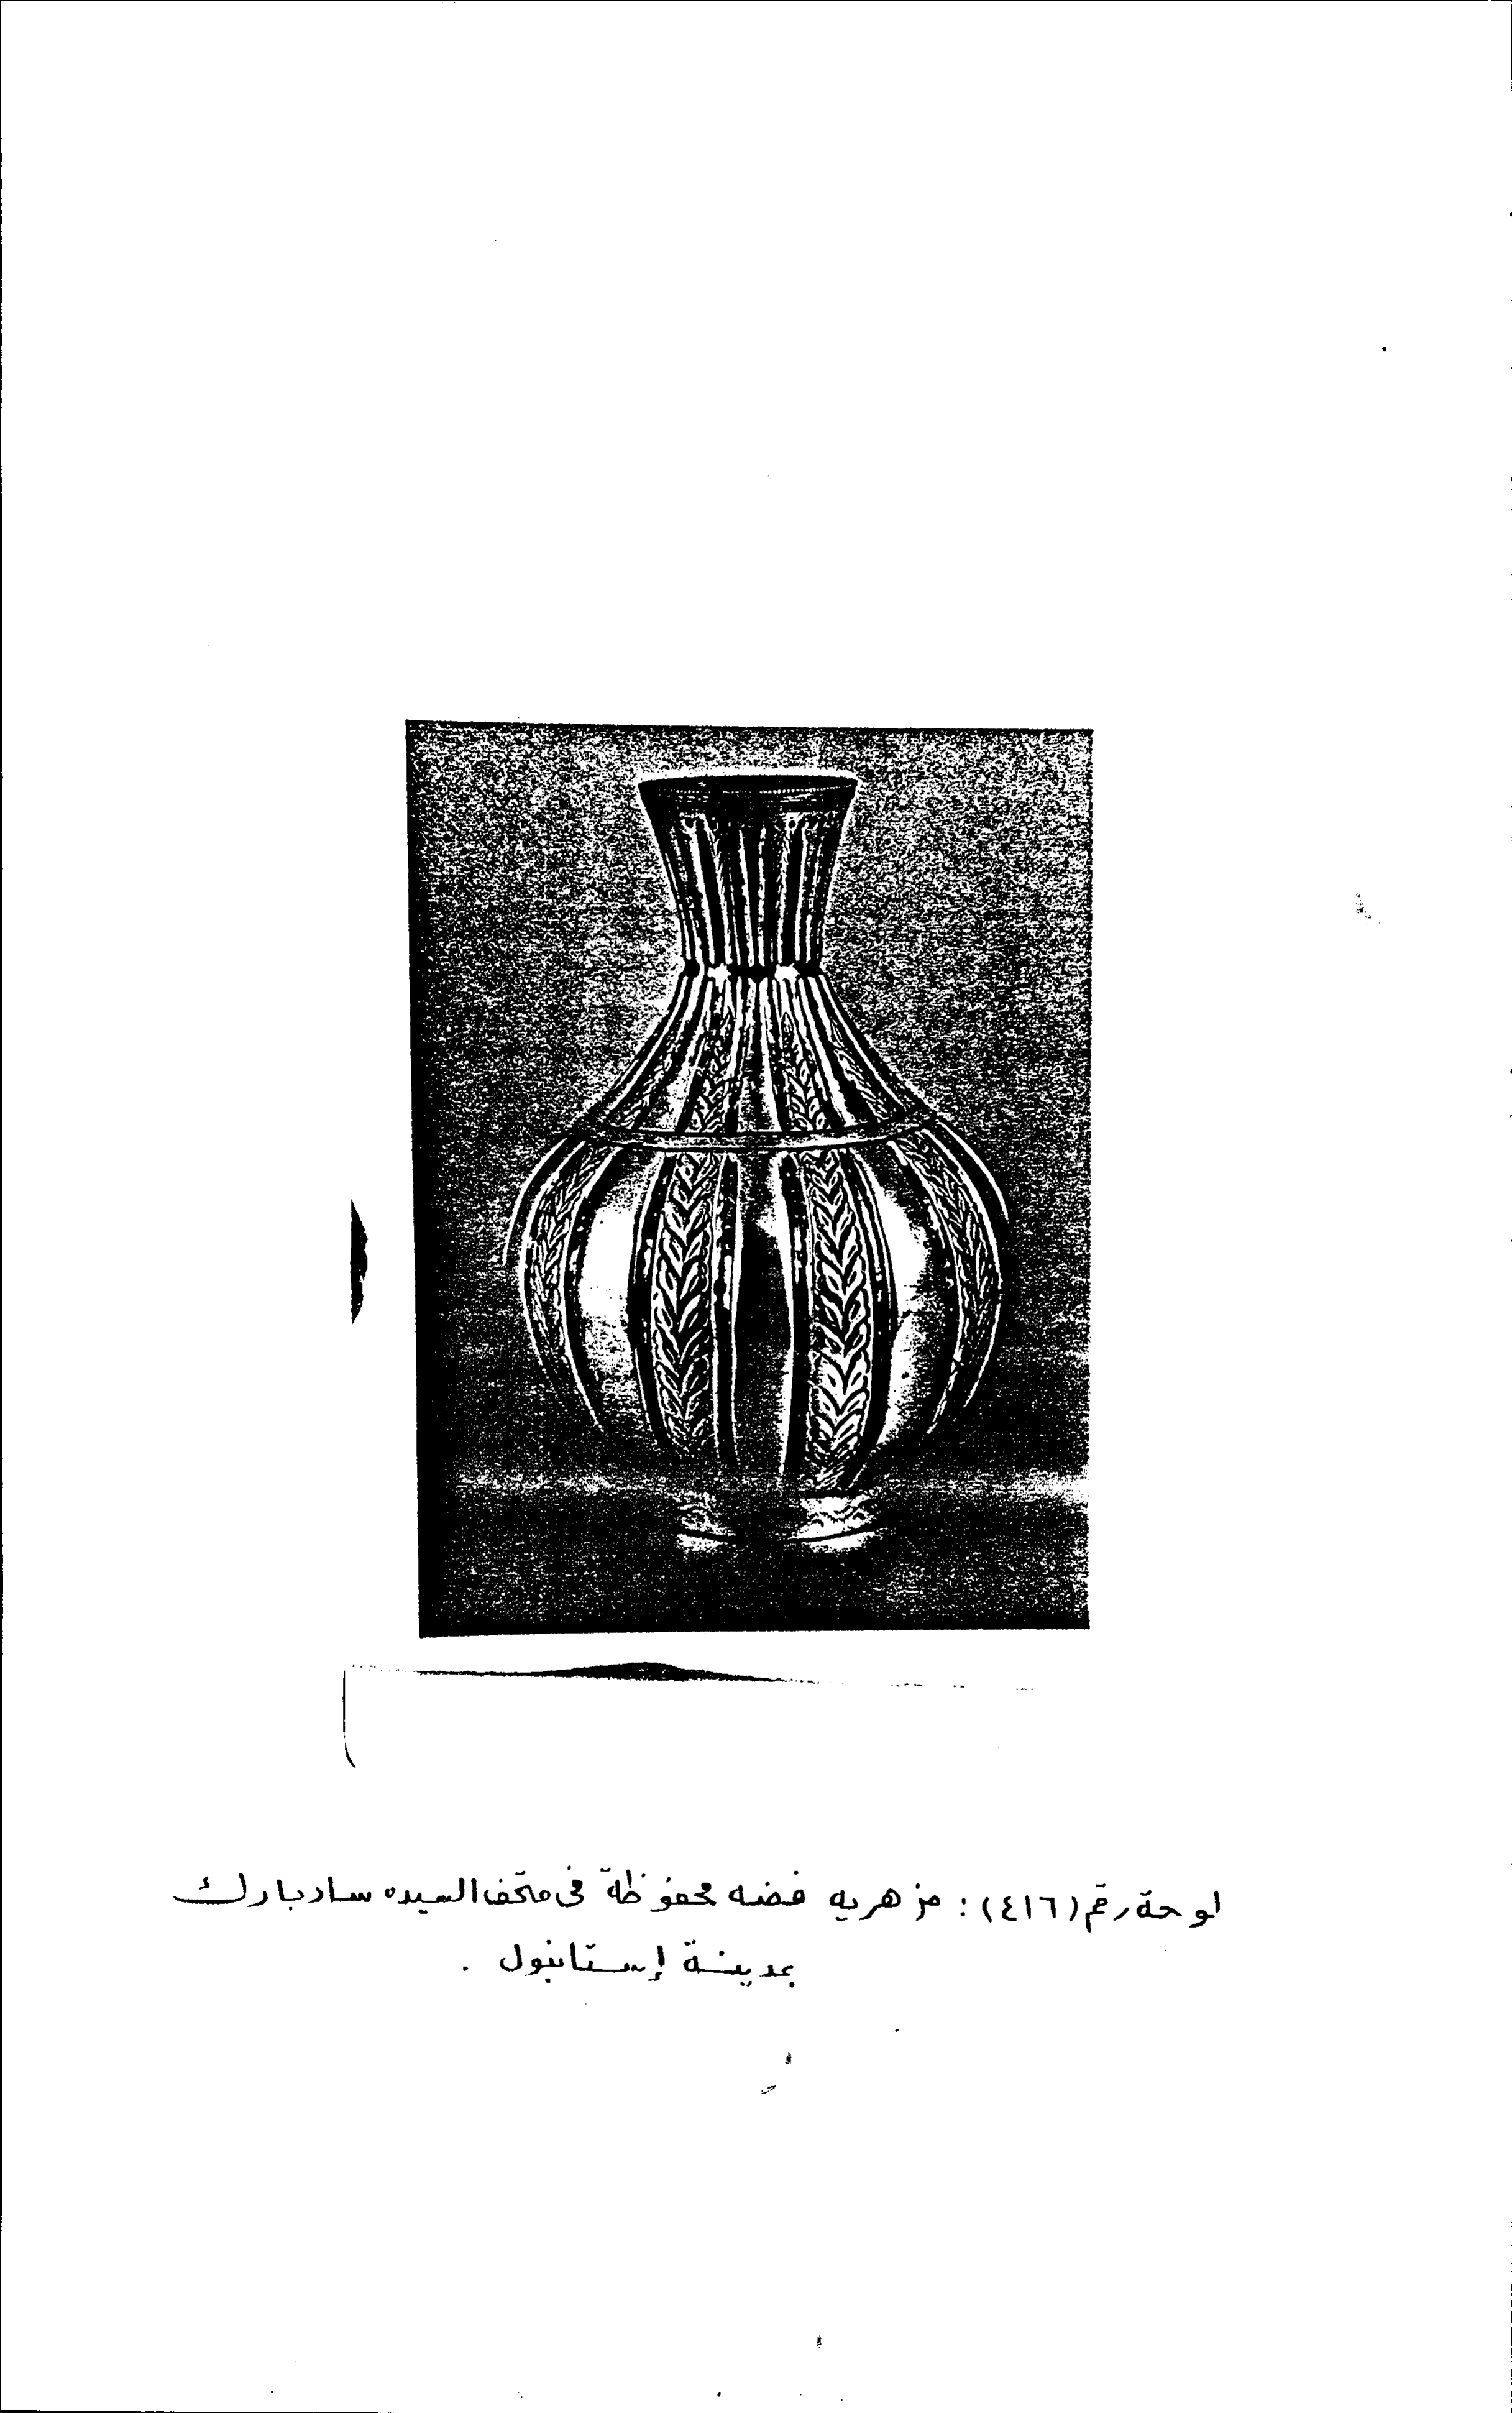 لوحة رقم (٤١٦) : مزهريه فضه محفوظة فى متحف السيده سادبارك
بمدينة إستانبول .